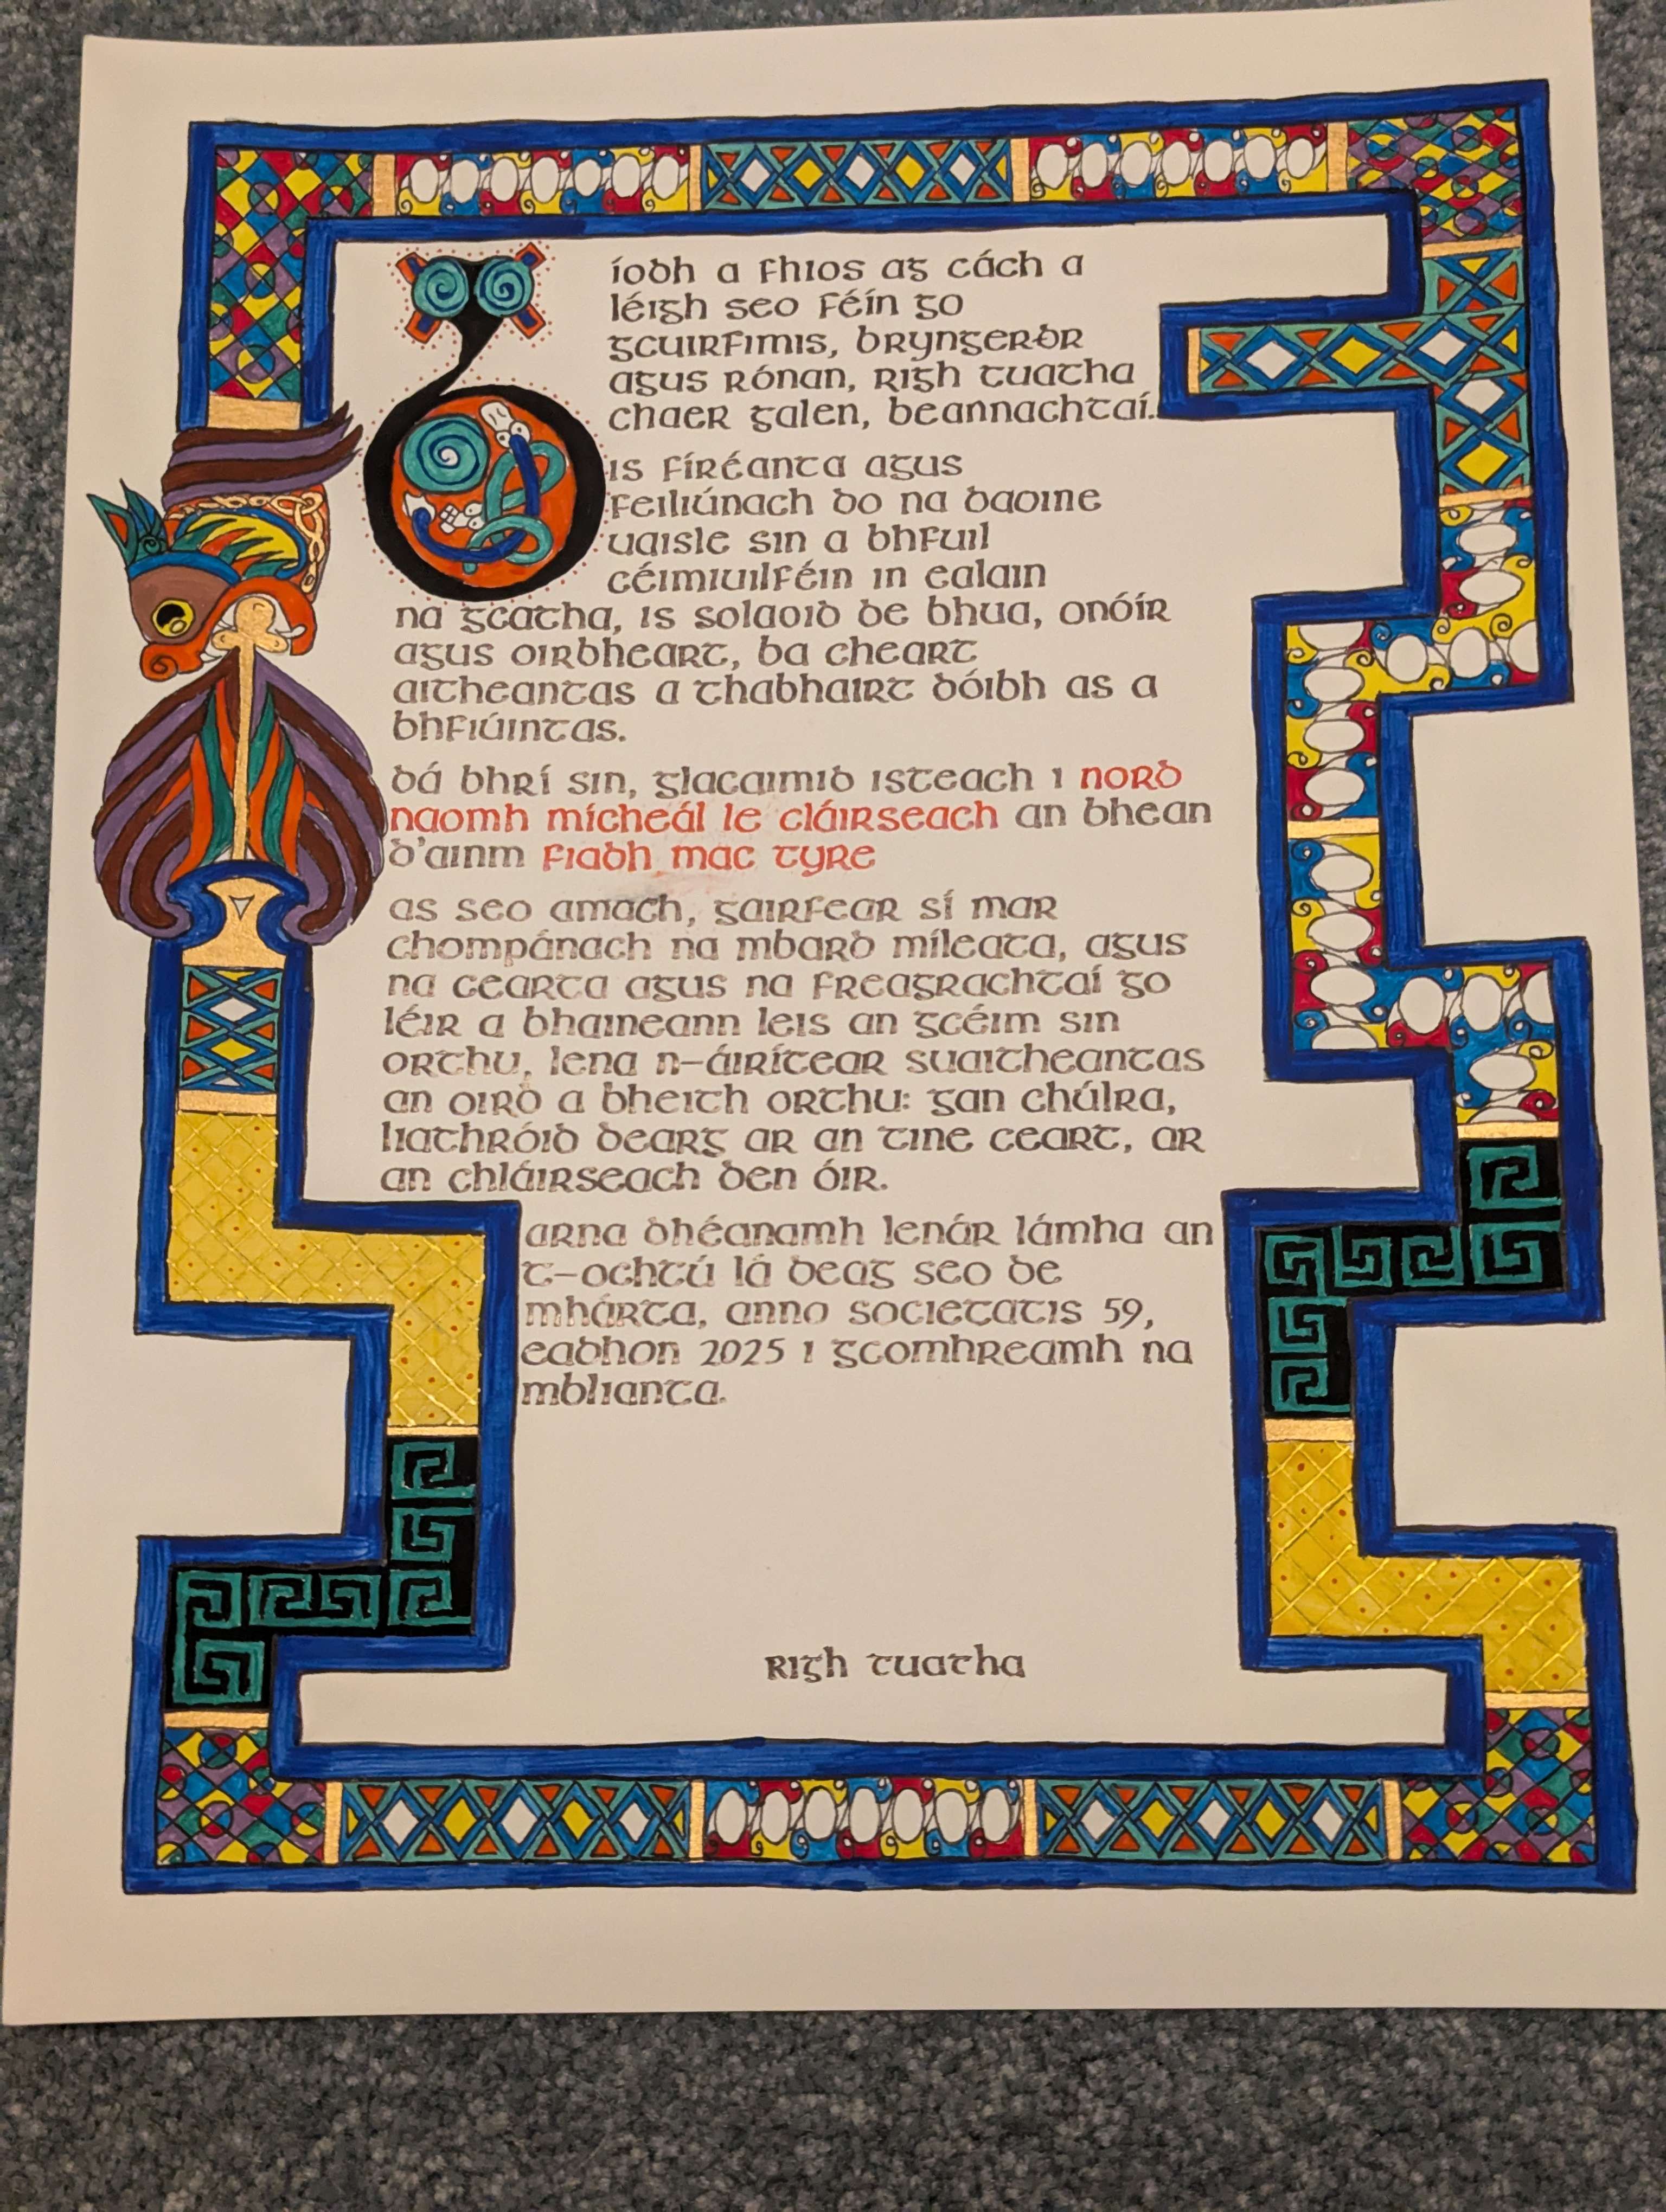 Bíodh a fhios ag cách a
léigh seo féin go
gcuirfimis, bryngerðr
agus rónan, rígh tuatha
chaer galen, beannachtaí.
is fíréanta agus
feiliúnach do na daoine
uaisle sin a bhfuil
céimiuilféin in ealain
na gcatha, is solaoid de bhua, onóir
agus oirbheart, ba cheart
aitheantas a thabhairt dóibh as a
bhfiúintas.
dá bhrí sin, glacaimid isteach i nord
naomh mícheál le cláirseach an bhean
d'ainm fiadh mac tyre
as seo amach, gairfear sí mar
chompánach na mbard míleata, agus
na cearta agus na freagrachtaí go
léir a bhaineann leis an gcéim sin
orthu, lena n-áirítear suaitheantas
an oird a bheith orthu: gan chúlra,
liathróid dearg ar an tine ceart, ar
an chláirseach den óir.
arna dhéanamh lenár lámha an
t-ochtú lá deag seo de
mhárta, anno societatis 59,
eadhon 2025 i gcomhreamh na
mblianta.
rígh tuatha